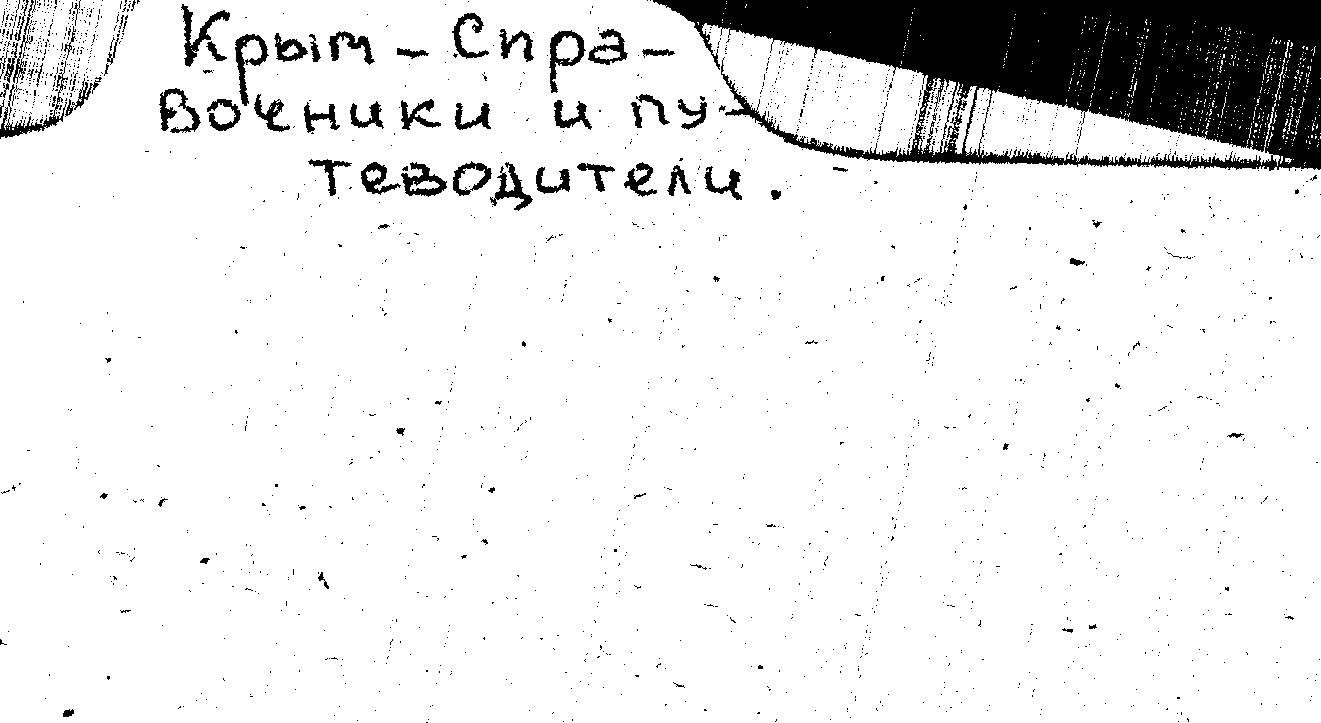 Крым - Спра-
вочники и пу-
теводители.